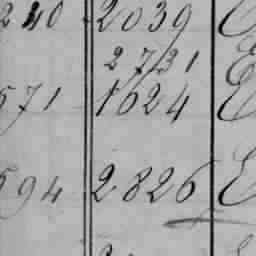 240 2039 E
2731 E
571 1624 E
594 2826 E